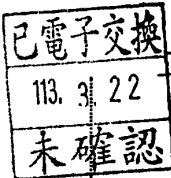 已電子交換
113. 3. 22
未確認